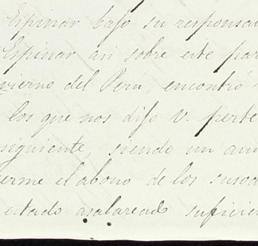 Espinar bajo su responsa
Espinar asi sobre este par
vierno del Peru, encontró
los que nos dijo V. perte
nsiguiente, siendo un au
erme el abono de los susod
estado asalareado suficie